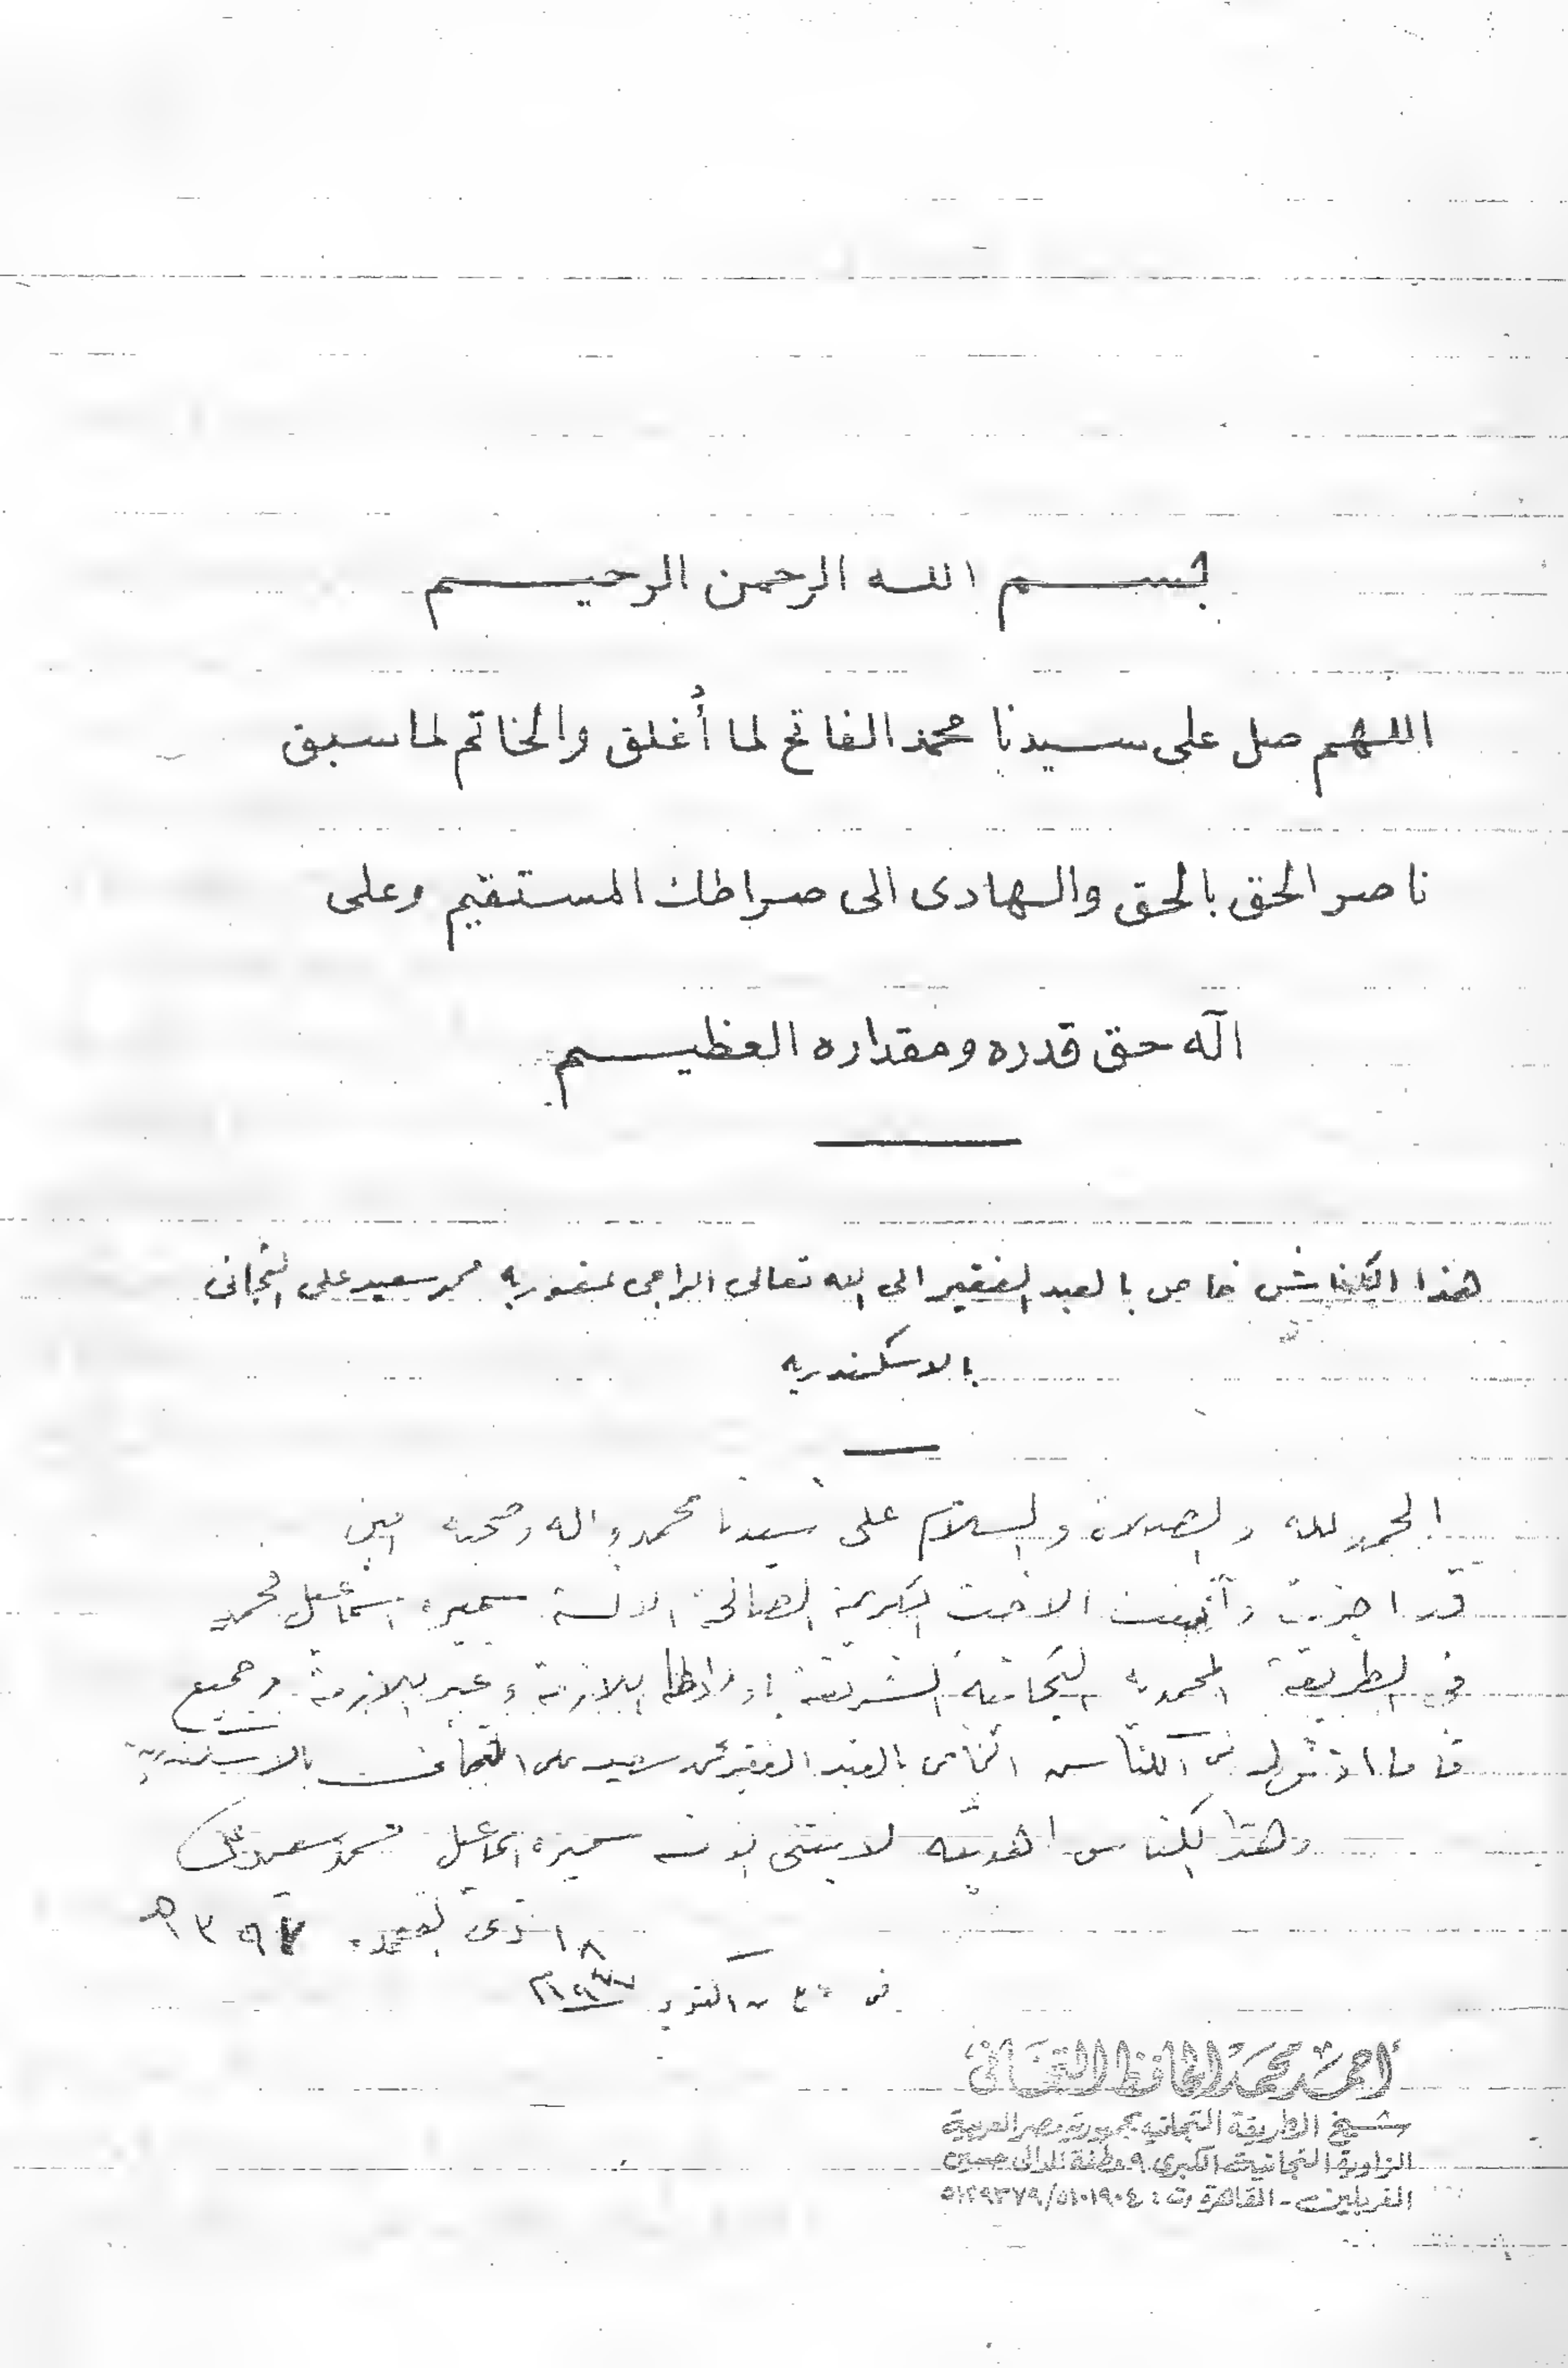 بسم الله الرحمن الرحيم
اللهم صل على سيدنا محمد الفاتح لما أُغلق والخاتم لما سبق
ناصر الحق بالحق والهادى الى صراطك المستقيم وعلى
آله حق قدره ومقداره العظيم
هذا الكناش خاص بالعبد الفقير الى الله تعالى الراجى عفو ربه محمد سعيد على التجانى
بالاسكندريه
الحمد لله والصلاة والسلام على سيدنا محمد واله وصحبه امين
قد اجزت الاخت الكريمة الصالحة الانسة سميره اسماعيل محمد
فى الطريقة المحمديه التجانية الشريفة اللازمة وغير اللازمة وجميع
فى الكناس الخاص بالعبد الفقير محمد سعيد على التجانى بالاسكندرية
وهذا الكناس لابنتى الانسه سميره اسماعيل محمد سعيد على
١٨ ذى القعده ١٣٩٧ هـ
فى اكتوبر ١٩٧٧ م
أحمد محمد الحافظ التجانى
شيخ الطريقة التجانية بجمهورية مصر العربية
الزاوية التجانية الكبرى ٩ عطفة الدالى حسين
المغربلين - القاهرة ت: ٥١٠١٩٠٤/٥١٢٩٣٧٩